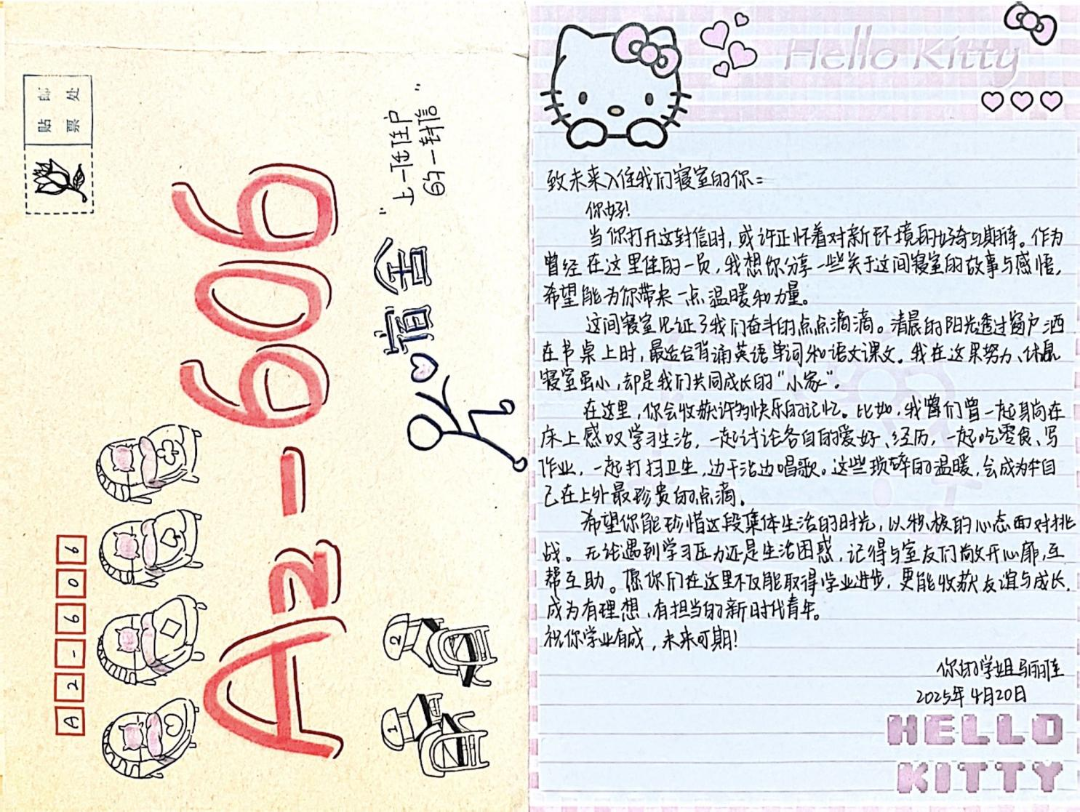 贴邮
票处
"上一位住户
的一封信"
宿舍
A2-606
A2-606
1
2
Hello Kitty
致未来入住我们寝室的你:
你好!
当你打开这封信时,或许正怀着对新环境的好奇与期待。作为
曾经在这里住的一员,我想你分享一些关于这间寝室的故事与感悟,
希望能为你带来一点温暖和力量。
这间寝室见证了我们奋斗的点点滴滴。清晨的阳光透过窗户洒
在书桌上时,最适合背诵英语单词和语文课文。我在这里努力、休息
寝室虽小,却是我们共同成长的"小家"。
在这里,你会收获许多快乐的记忆。比如,我曾们曾一起躺在
床上感叹学习生活,一起讨论各自的爱好、经历,一起吃零食、写
作业,一起打扫卫生,边干活边唱歌。这些琐碎的温暖,会成为自
己在上外最珍贵的点滴。
希望你能珍惜这段集体生活的时光,以积极的心态面对挑
战。无论遇到学习压力还是生活困惑,记得与室友们敞开心扉,互
帮互助。愿你们在这里不仅能取得学业进步,更能收获友谊与成长,
成为有理想、有担当的新时代青年。
祝你学业有成,未来可期!
你的学姐马丽
2025年4月20日
HELLO
KITTY